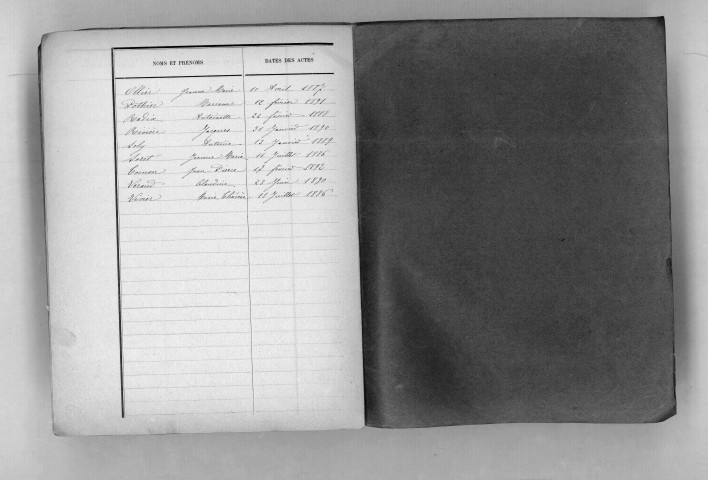 NOMS ET PRÉNOMS DATES DES ACTES
Ollier Jeanne Marie 11 Avril 1887
Pothier Marianne 12 février 1891
Rodix Antoinette 22 février 1888
Jacques 31 Janvier 1890
Soly Antoine 13 Janvier 1889
Soret Jeanne Marie 16 Juillet 1886
Jean Pierre 17 février 1892
Veraud Claudine 23 Juin 1890
Vivier Anne Thérèse 12 Juillet 1886